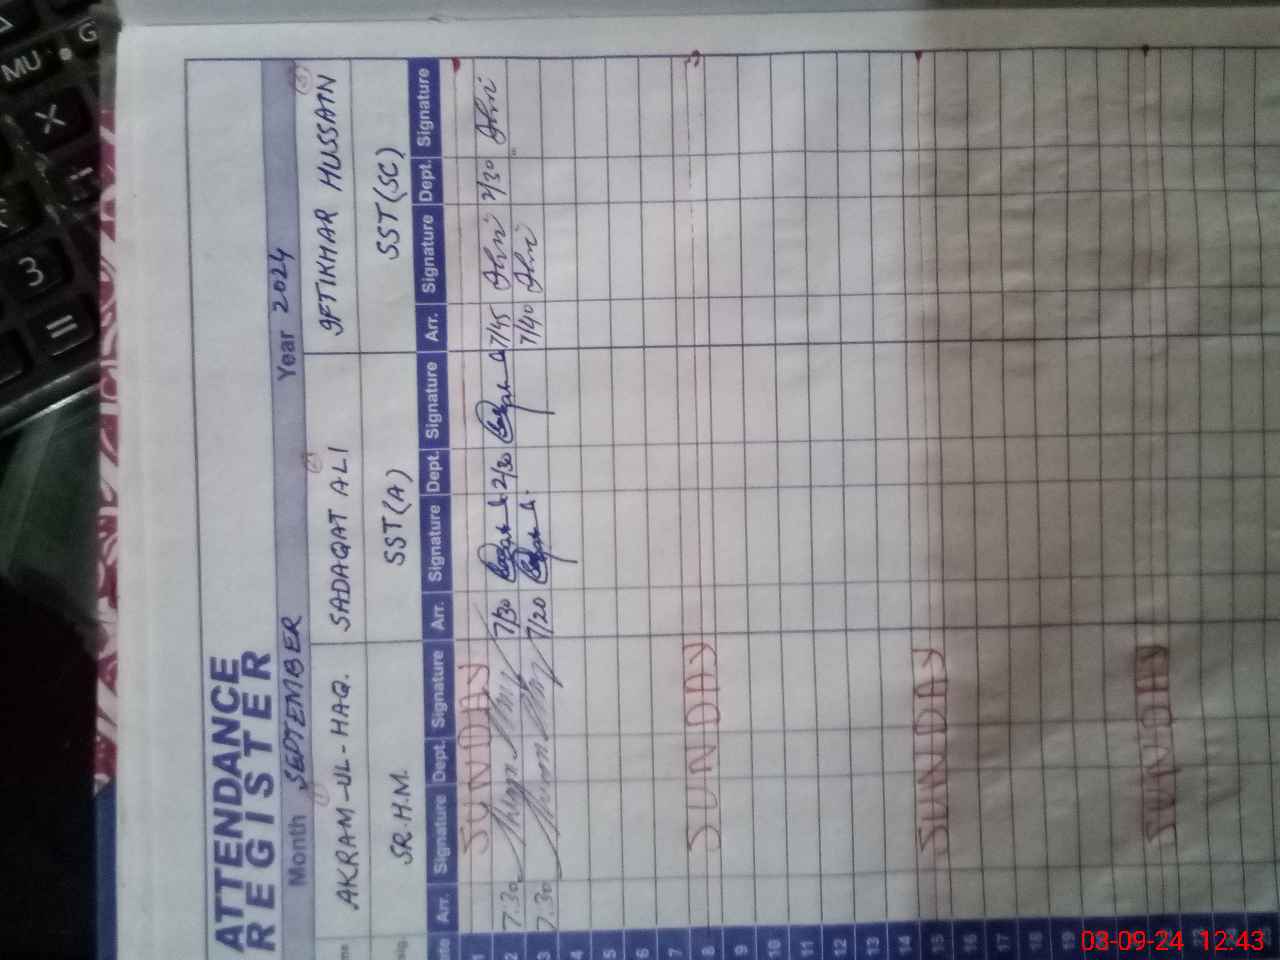 ATTENDANCE
REGISTER
Month SEPTEMBER Year 2024
AKRAM-UL-HAQ. SADAQAT ALI IFTIKHAR HUSSAIN
SR.H.M. SST(A) SST(SC)
Arr. Signature Dept. Signature Arr. Signature Dept. Signature Arr. Signature Dept. Signature
1 SUNDAY
2 7.30 7/30 2/30 7/45 2/30
3 7.30 7/20 7/40
4
5
6
7
8 SUNDAY
9
10
11
12
13
14
15 SUNDAY
16
17
18
19
SUNDAY
23
24
25
MU
G
X
3
=
03-09-24 12:43